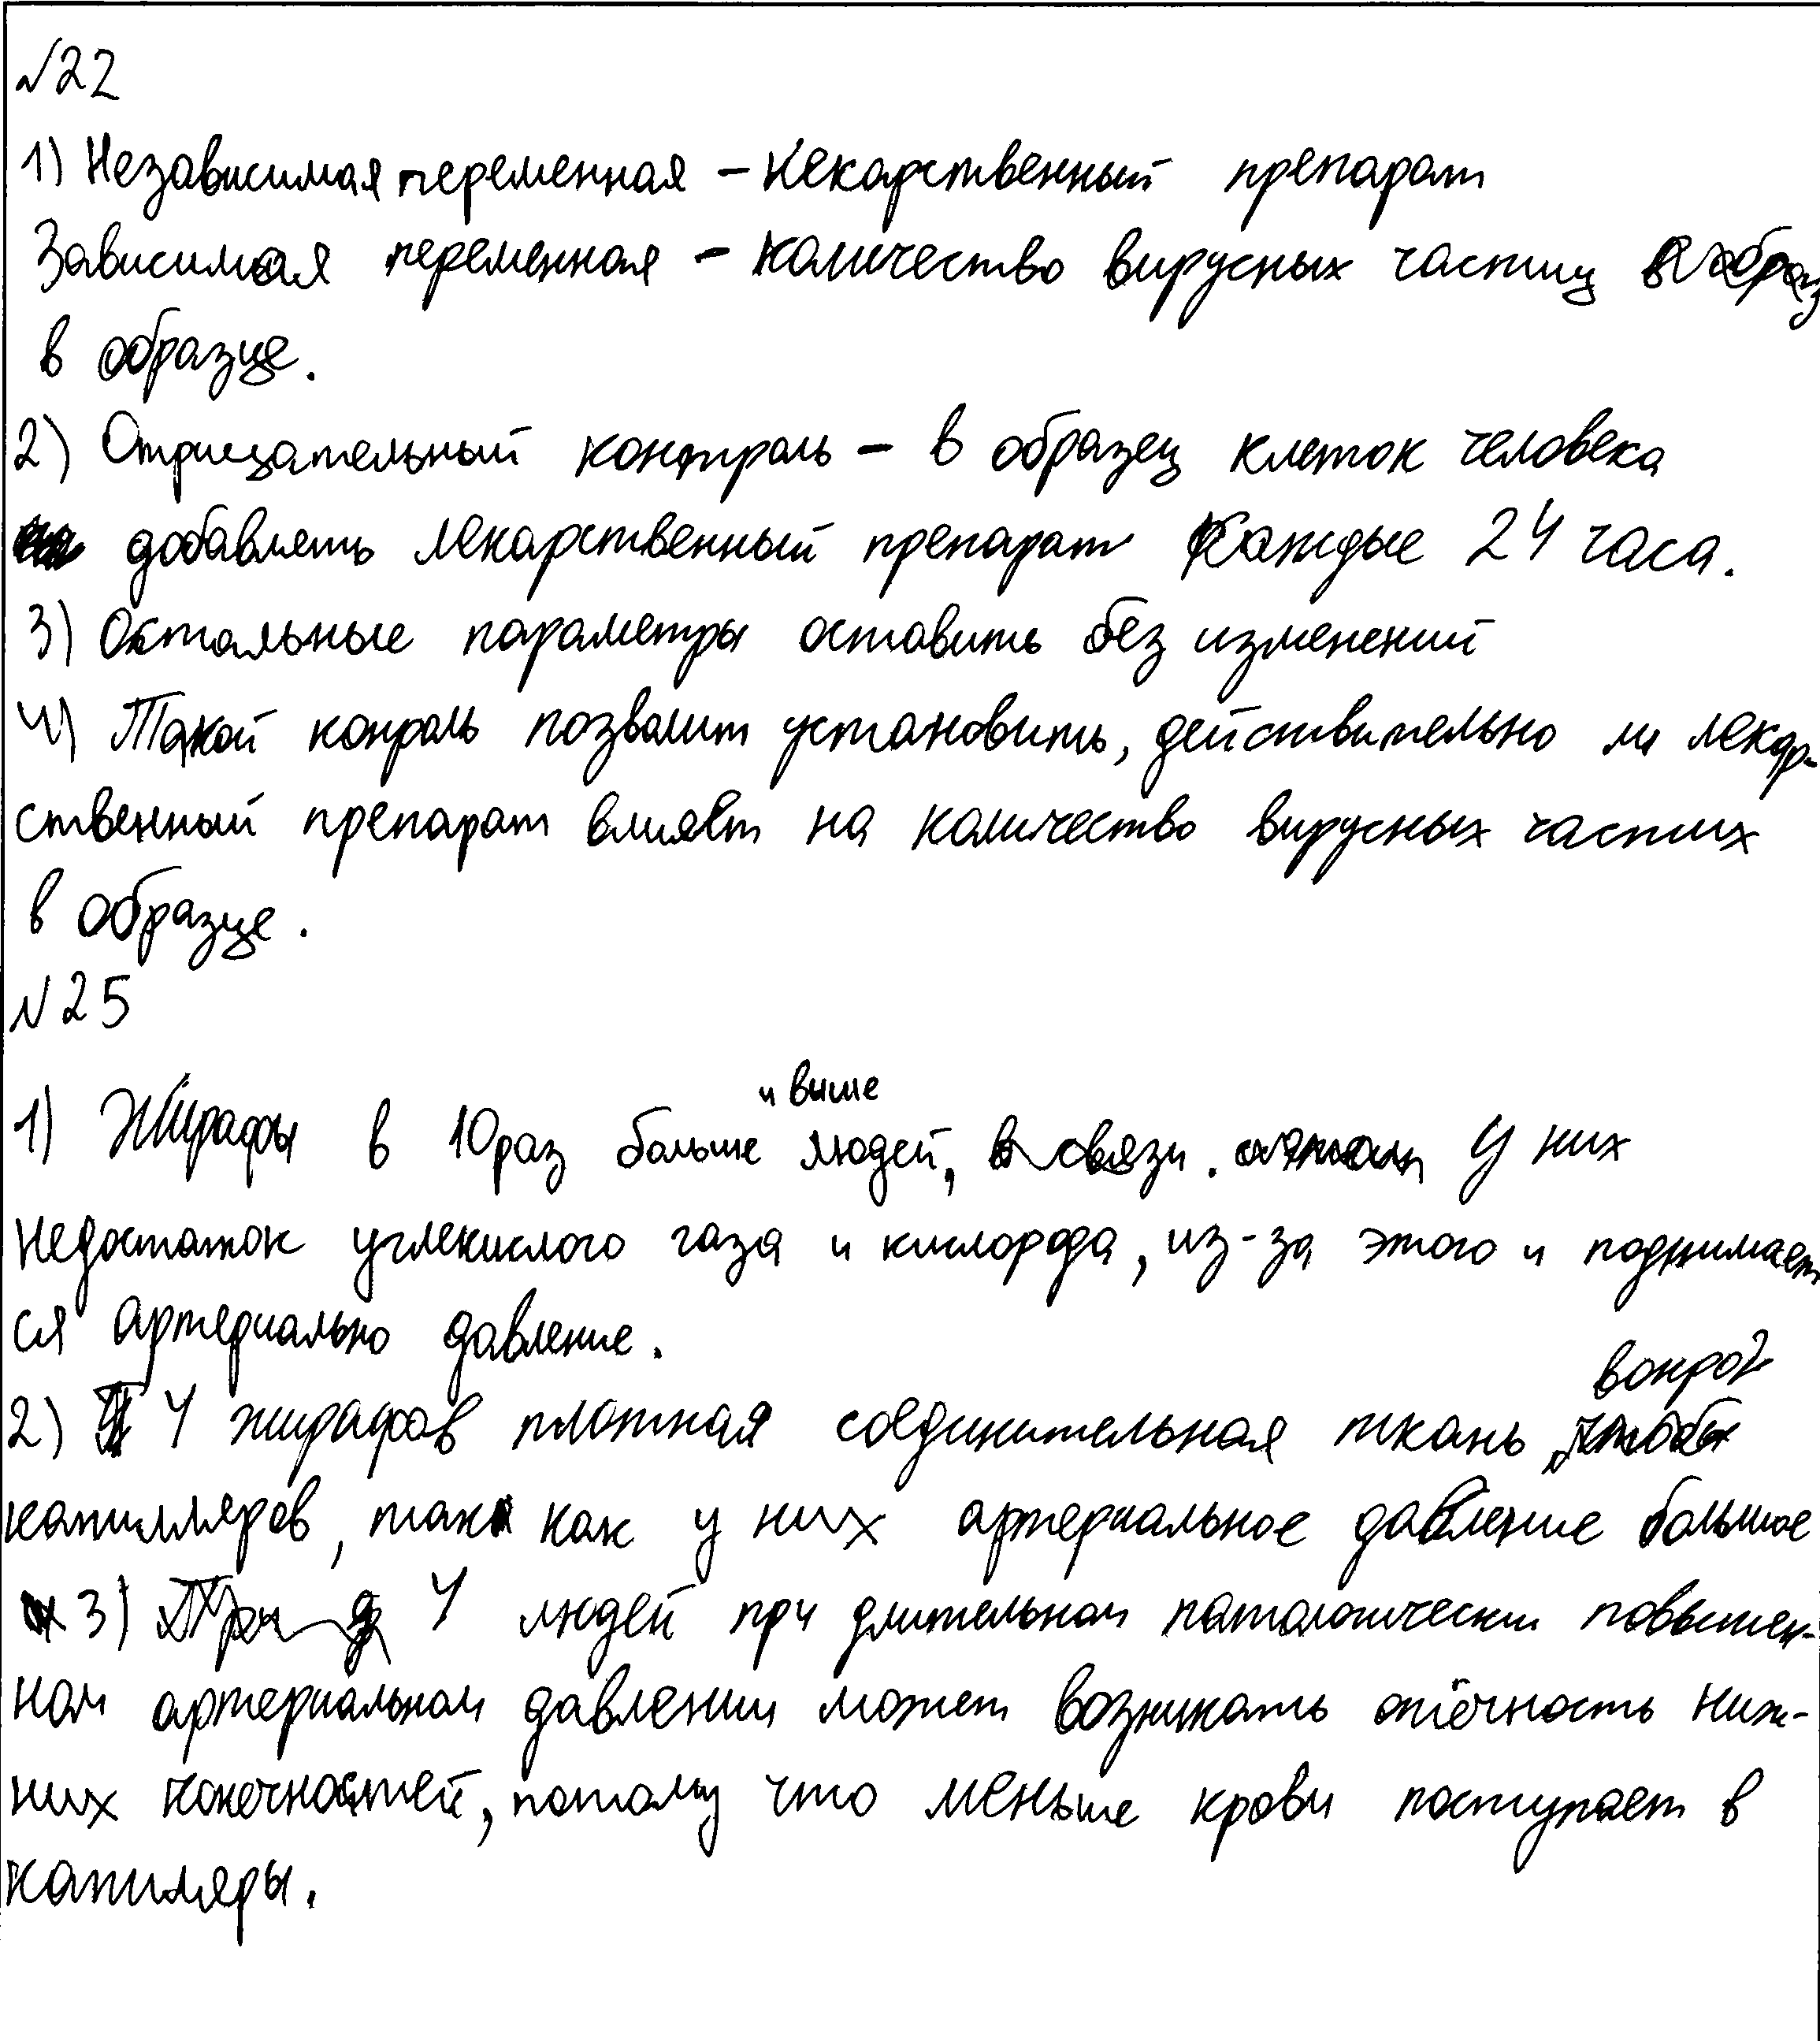 №22
1) Независимая переменная – лекарственный препарат
Зависимая переменная – количество вирусных частиц
в образце.
2) Отрицательный контроль – в образец клеток человека
добавлять лекарственный препарат каждые 24 часа.
3) Остальные параметры оставить без изменений
4) Такой конроль позволит установить, действительно ли лекар-
ственный препарат влияет на количество вирусных частих
в образце.
№25
1) Жирафы в 10 раз больше и выше людей, . У них
недостаток углекислого газа и кислорода, из-за этого и поднимает
ся артериально давление.
2) У жирафов плотная соединительная ткань вокрог
капилляров, так как у них артериальное давление большое
3) У людей при длительном патологически повышен-
ном артериальном давлении может возникать отёчность ниж-
них конечностей, потому что меньше крови поступает в
капиляры.